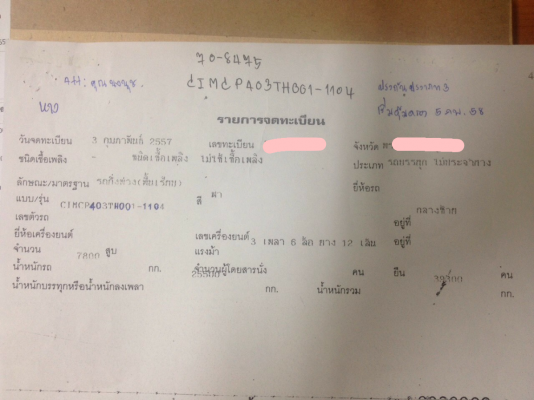 70-8475
CIMCP403THB61-1104
Att: คุณ
ประกันประเภท 3
เริ่มคุ้มครอง 5 กพ. 58
รายการจดทะเบียน
วันจดทะเบียน 3 กุมภาพันธ์ 2557 เลขทะเบียน จังหวัด
ชนิดเชื้อเพลิง - ชนิดเชื้อเพลิง ไม่ใช้เชื้อเพลิง ประเภท รถบรรทุก ไม่ประจำทาง
ลักษณะ/มาตรฐาน รถกึ่งพ่วง ยี่ห้อรถ
แบบ/รุ่น CIMCP403TH001-1104 สี ดำ
เลขตัวรถ อยู่ที่ กลางซ้าย
ยี่ห้อเครื่องยนต์ เลขเครื่องยนต์ 3 เพลา 6 ล้อ ยาง 12 เส้น อยู่ที่
จำนวน 7800 สูบ แรงม้า
น้ำหนักรถ กก. 25500 จำนวนผู้โดยสารนั่ง คน ยืน 33300 คน
น้ำหนักบรรทุกหรือน้ำหนักลงเพลา กก. น้ำหนักรวม กก.